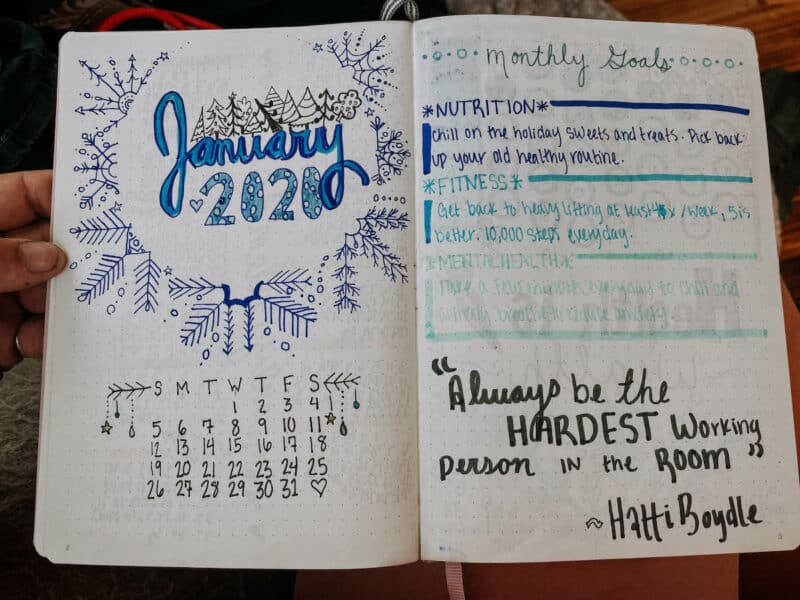 January
2020
S M T W T F S
1 2 3 4
5 6 7 8 9 10 11
12 13 14 15 16 17 18
19 20 21 22 23 24 25
26 27 28 29 30 31
Monthly Goals
*NUTRITION*
Chill on the holiday sweets and treats. Pick back
up your old healthy routine.
*FITNESS*
Get back to heavy lifting at least 4x/week, 5 is
better. 10,000 steps everyday.
*MENTAL HEALTH*
Take a few minutes everyday to chill and
actively breathe to reduce anxiety
"Always be the
HARDEST Working
Person IN the ROOM"
~ Hatti Boydle